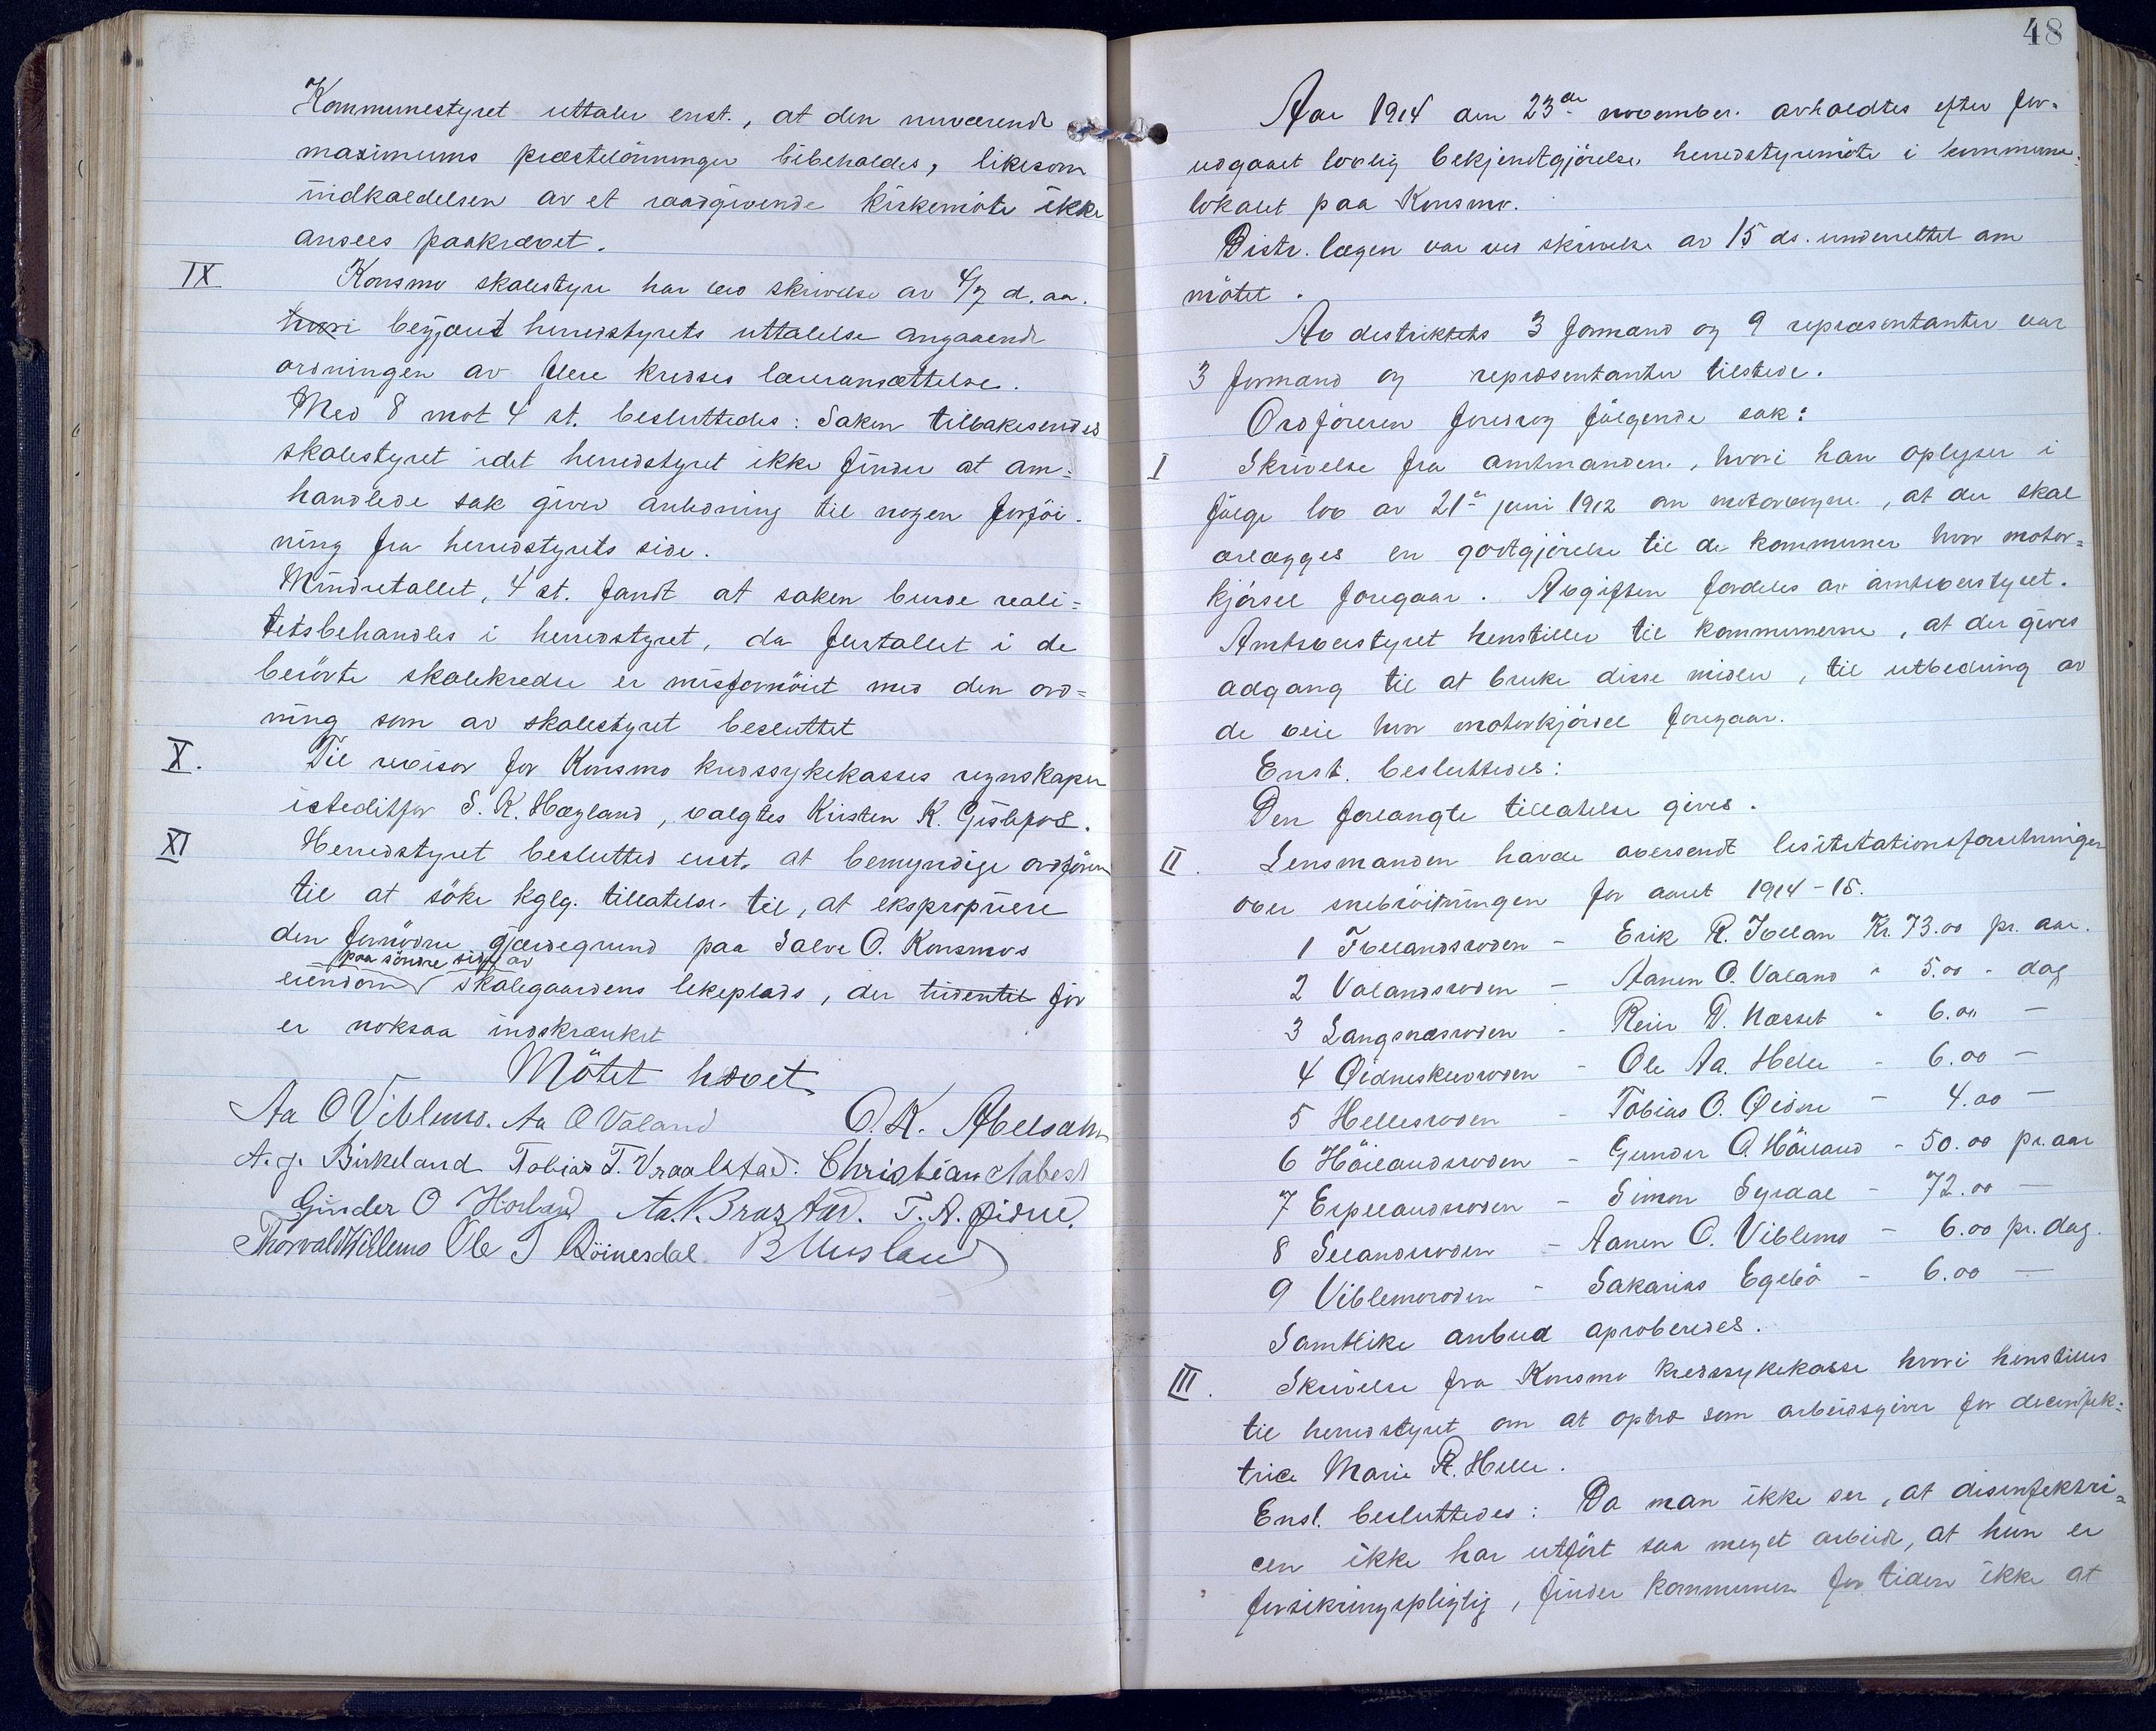 Kommunestyret uttaler enst., at den nuværende
maximums præstelönninger bibeholdes, likesom
indkaldelsen av et raadgivende kirkemöte ikke
ansees paakrævet.
IX Konsmo skolestyre har ved skrivelse av 4/7 d. aa.
hvori begjært herredstyrets uttalelse angaaende
ordningen av flere kredses læreransættelse.
Med 8 mot 4 st. besluttedes: Saken tilbakesendes
skolestyret idet herredstyret ikke finder at om=
handlede sak giver anledning til nogen forföi-
ning fra herredstyrets side.
Mindretallet, 4 st. fandt at saken burde reali=
tetsbehandles i herredstyret, da flertallet i de
berörte skolekredse er misfornöiet med den ord=
ning som av skolestyret besluttet
X. Til revisor for Konsmo kredssykekasses regnskaper
istedetfor S. K. Hægland, valgtes Kristen K. Gislefos.
XI Herredstyret beslutted enst. at bemyndige ordfören
til at söke kglg. tillatelse til, at ekspropriere
den fornödne gjærdegrund paa Salve O. Konsmos
paa söndre side av
eiendom skolegaardens lekeplads, der tidentil för
er noksaa indskrænket
Mötet hævet
Aa O Viblemo. Aa O Valand O. K. Abelsahn
A. J. Birkeland Tobias T. Vraalstad. Christian Aabest
Gunder O Höiland Aa. N. Braastad. T. A. Øidne.
Thorvald Viblemo Ole T Röinesdal.
48
Aar 1914 den 23de november. avholdtes efter for-
udgaaet lovlig bekjendtgjörelse herredstyremöte i kommune-
lokalet paa Konsmo.
Distr. lægen var ved skrivelse av 15 ds. underrettet om
mötet.
Av destriktets 3 formænd og 9 repræsentanter var
3 formænd og repræsentanter tilstede.
Ordföreren foredrog fölgende sak:
I Skrivelse fra amtmanden, hvori han oplyser i
fölge lov av 21de juni 1912 om motorvogne, at der skal
erlægges en godtgjörelse til de kommuner hvor motor=
kjörsel foregaar. Avgiften fordeles av amtsveistyret.
Amtsveistyret henstiller til kommunerne, at der gives
adgang til at bruke disse midler, til utbedring av
de veie hvor motorkjörsel foregaar.
Enst. besluttedes:
Den forlangte tillatelse gives.
II. Lensmanden havde oversendt lisitetationsforretninger
over snebröitningen for aaret 1914-15.
1 Ivelandsroden - Erik R. Ivelan Kr. 73.00 pr. aar.
2 Valandsroden - Aanen O. Valand " 5.00 - dag
3 Langnæsroden - Reier T. Næsset " 6.00 -
4 Øidneskleroden - Ole Aa. Helle - 6.00 -
5 Hellesroden - Tobias O. Øidne - 4.00 -
6 Höilandsroden - Gunder O. Höiland - 50.00 pr. aar
7 Espelandsroden - Simon Syrdal - 72.00 -
8 Selandsroden - Aanen O. Viblemo - 6.00 pr. dag.
9 Viblemoroden - Sakarias Egebö - 6.00 -
Samtlike anbud aproberedes.
III. Skrivelse fra Konsmo kredssykekasse hvori henstilles
til herredstyret om at optræ som arbeidsgiver for desinfek=
trice Marie R. Helle.
Enst. besluttedes: Da man ikke ser, at disenfektri=
cen ikke har utfört saa meget arbeide, at hun er
forsikringspligtig, finder kommunen for tiden ikke at